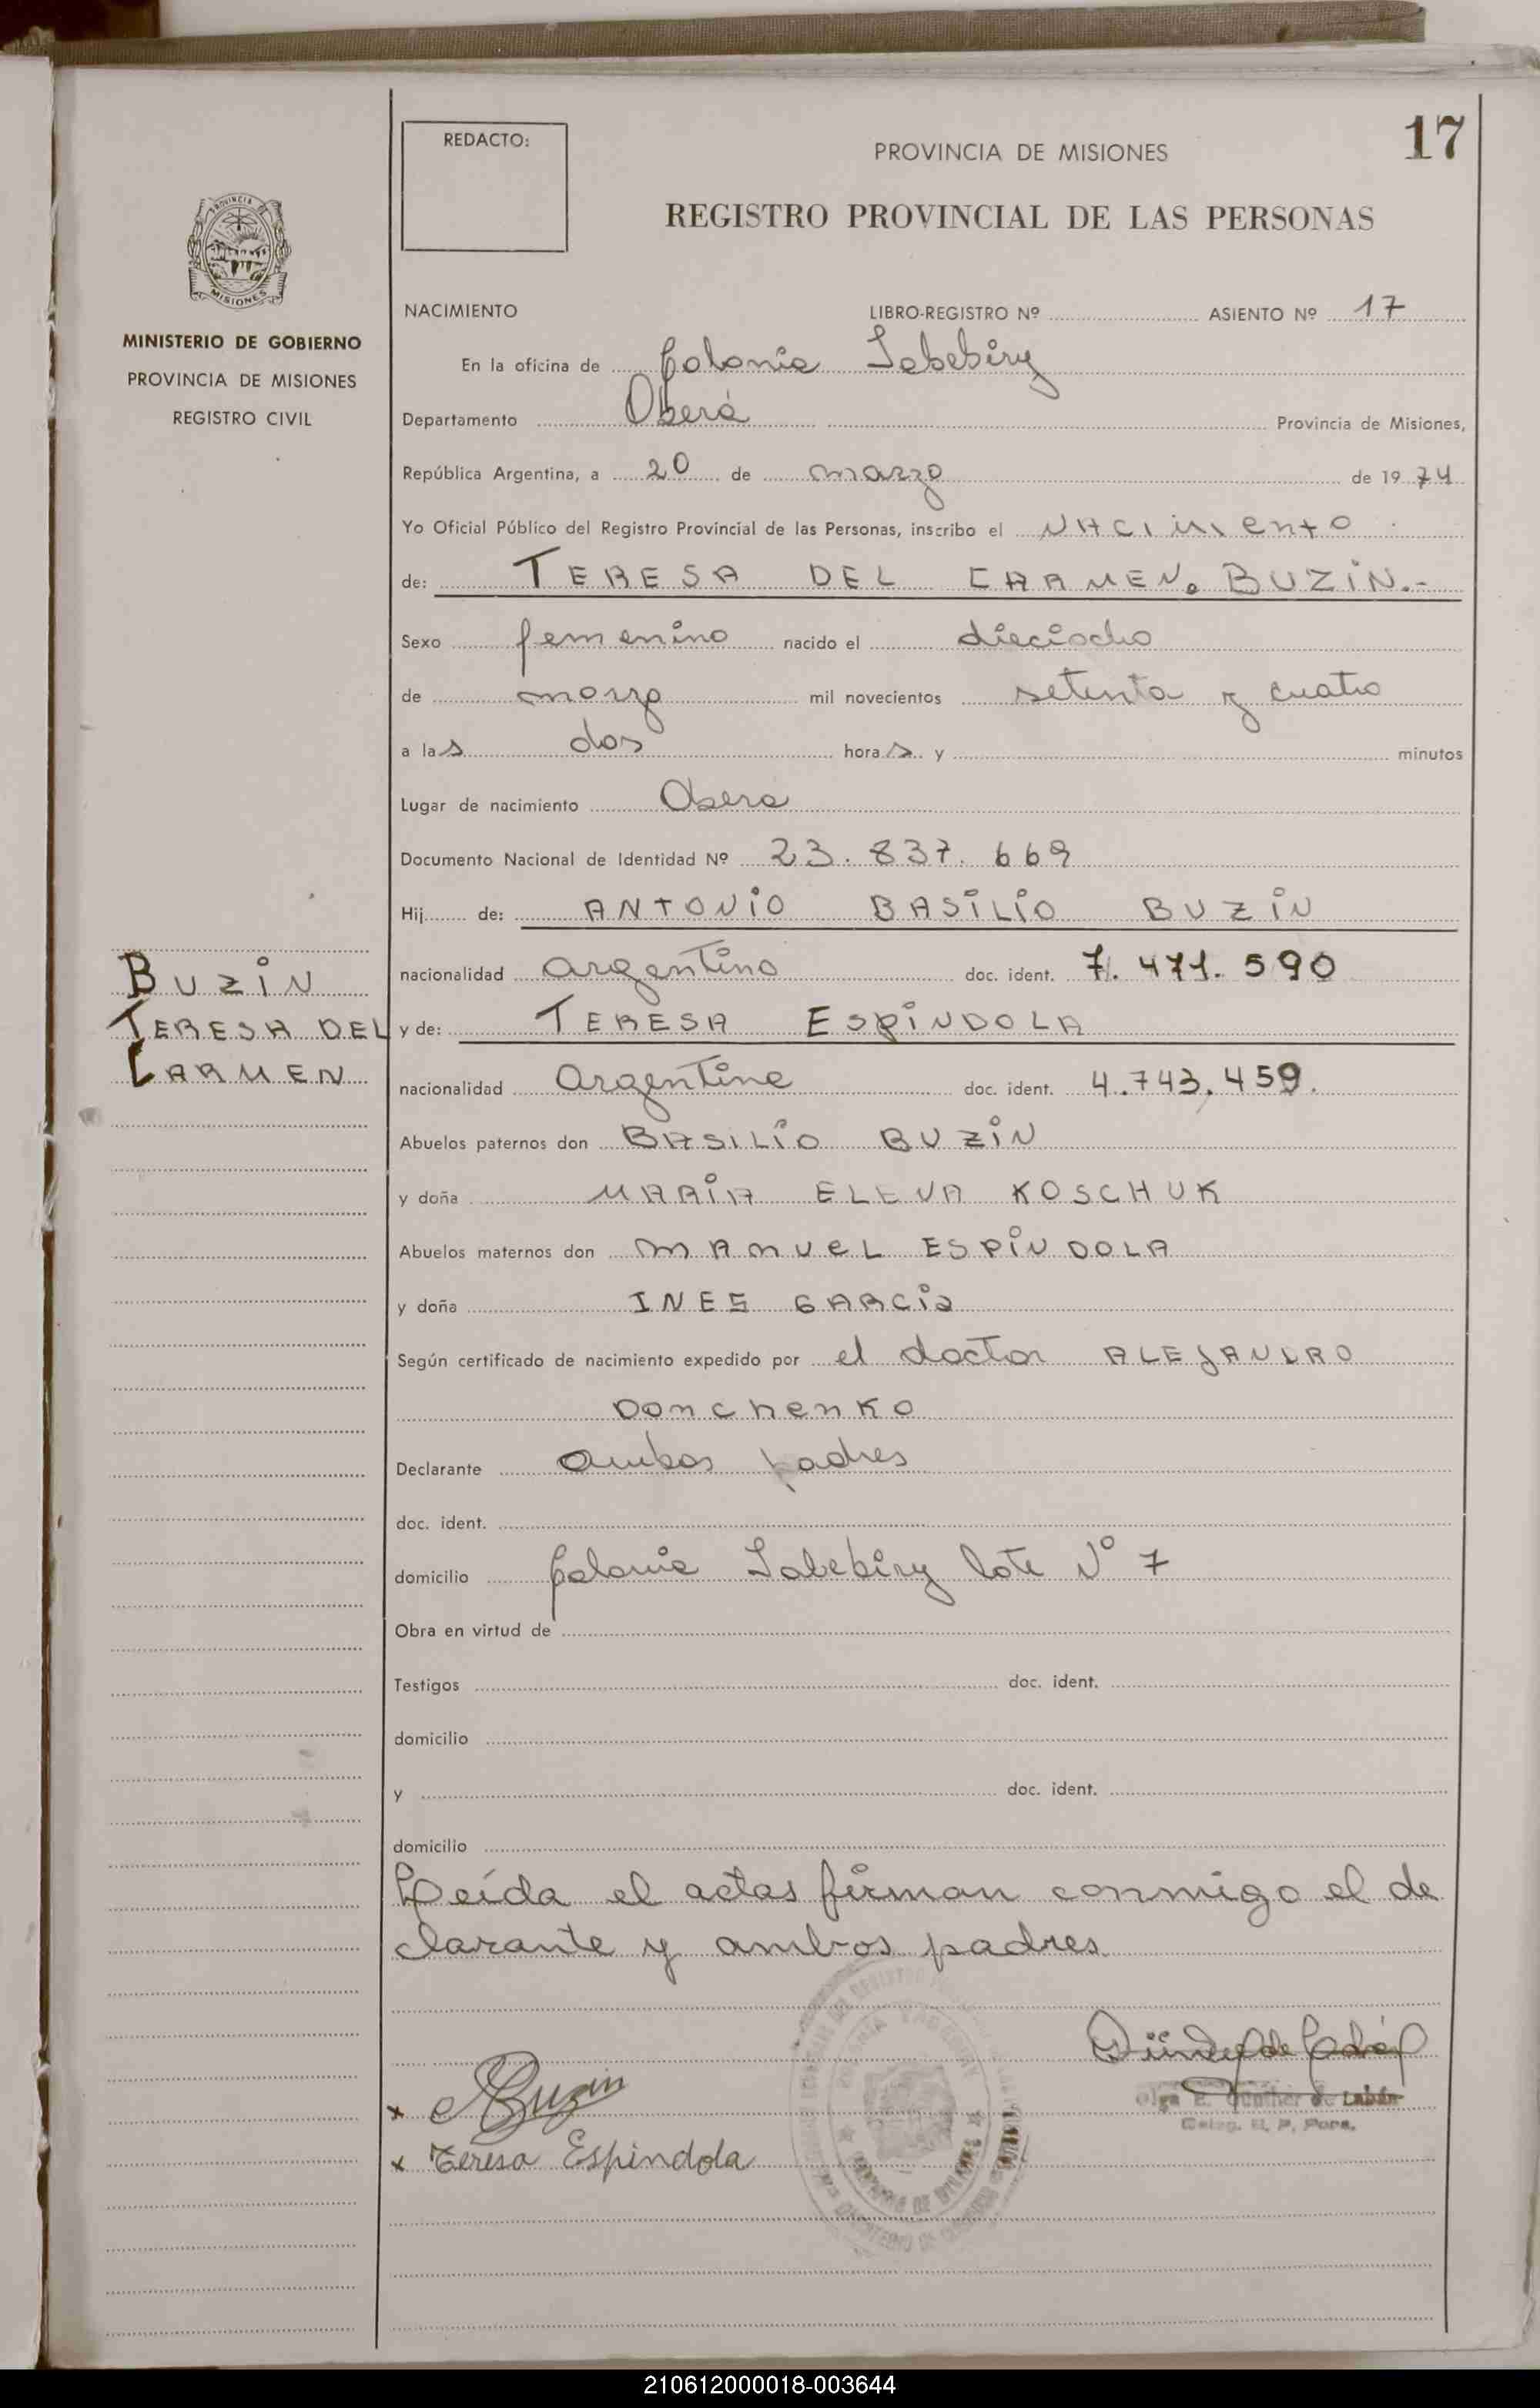 17
REDACTO:
PROVINCIA DE MISIONES
REGISTRO PROVINCIAL DE LAS PERSONAS
PROVINCIA DE
MISIONES
MINISTERIO DE GOBIERNO
PROVINCIA DE MISIONES
REGISTRO CIVIL
NACIMIENTO LIBRO-REGISTRO Nº ASIENTO Nº 17
En la oficina de Colonia Yabebiry
Departamento Oberá Provincia de Misiones,
República Argentina, a 20 de marzo de 1974
Yo Oficial Público del Registro Provincial de las Personas, inscribo el NACIMIENTO
de: TERESA DEL CARMEN. BUZIN.-
Sexo femenino nacido el dieciocho
de marzo mil novecientos setenta y cuatro
a las dos horas y minutos
Lugar de nacimiento Obera
Documento Nacional de Identidad Nº 23.837.669
Hij de: ANTONIO BASILIO BUZIN
nacionalidad argentino doc. ident. 7.471.590
BUZIN
TERESA DEL
CARMEN
y de: TERESA ESPINDOLA
nacionalidad argentina doc. ident. 4.743.459.
Abuelos paternos don BASILIO BUZIN
y doña MARIA ELENA KOSCHUK
Abuelos maternos don MANUEL ESPINDOLA
y doña INES GARCIA
Según certificado de nacimiento expedido por el doctor ALEJANDRO
DONCHENKO
Declarante ambos padres
doc. ident.
domicilio Colonia Yabebiry lote Nº 7
Obra en virtud de
Testigos doc. ident.
domicilio
y doc. ident.
domicilio
Leída el actas firman conmigo el de
clarante y ambos padres
x Buzin
x Teresa Espindola
Olga E. Günther de Labán
210612000018-003644